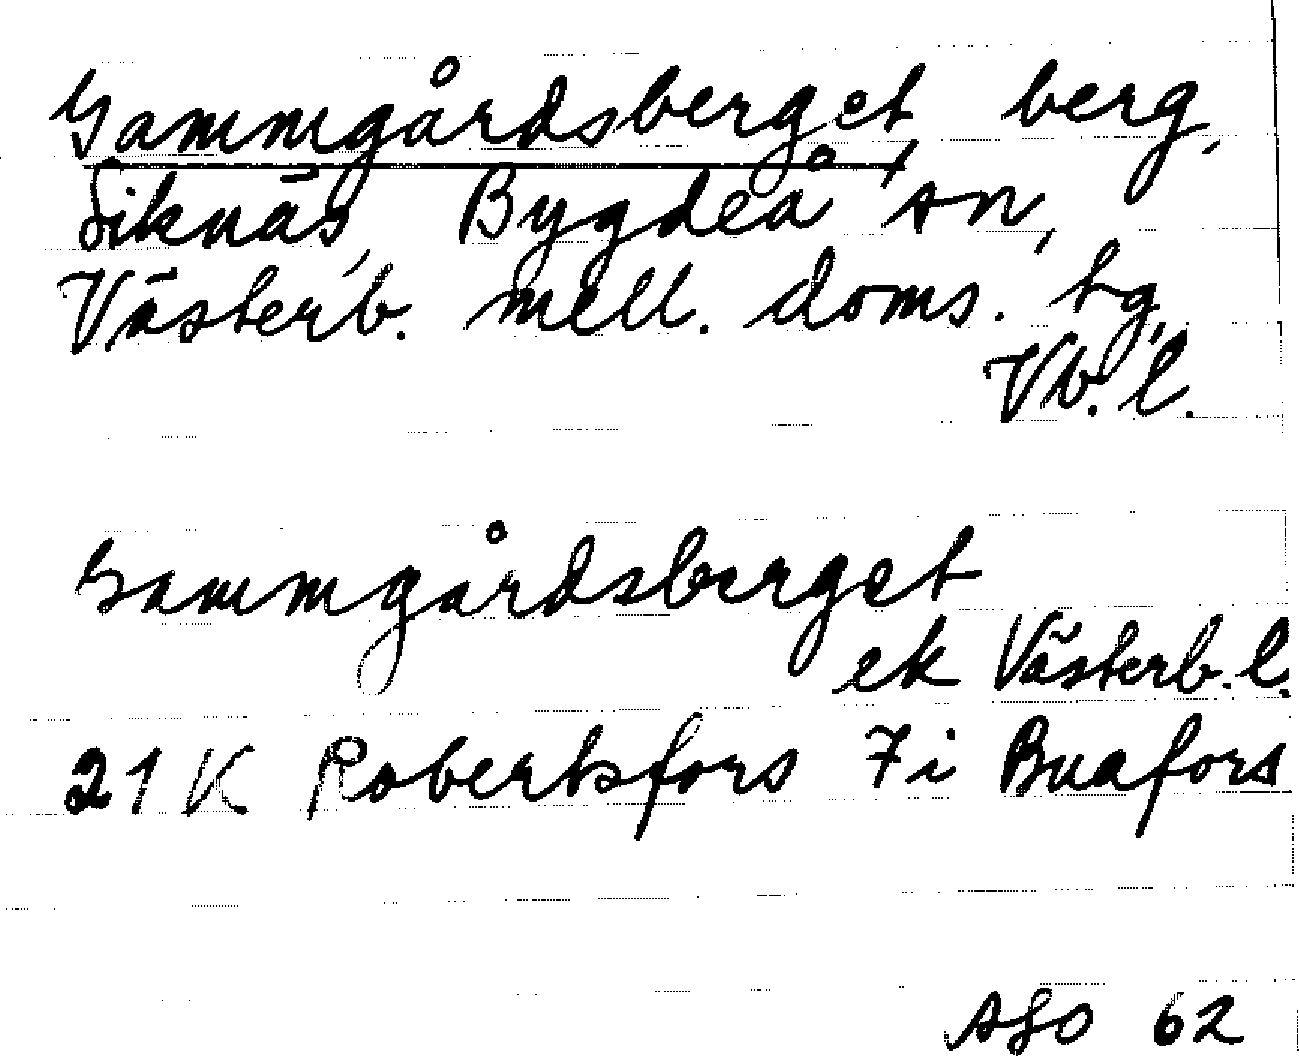 Gammgårdsberget, berg,
Siknäs, Bygdeå sn,
Västerb. mell. doms. tg,
Vb. l.
Gammgårdsberget
ek Västerb. l.
21 K Robertsfors 7i Buafors
AGO 62